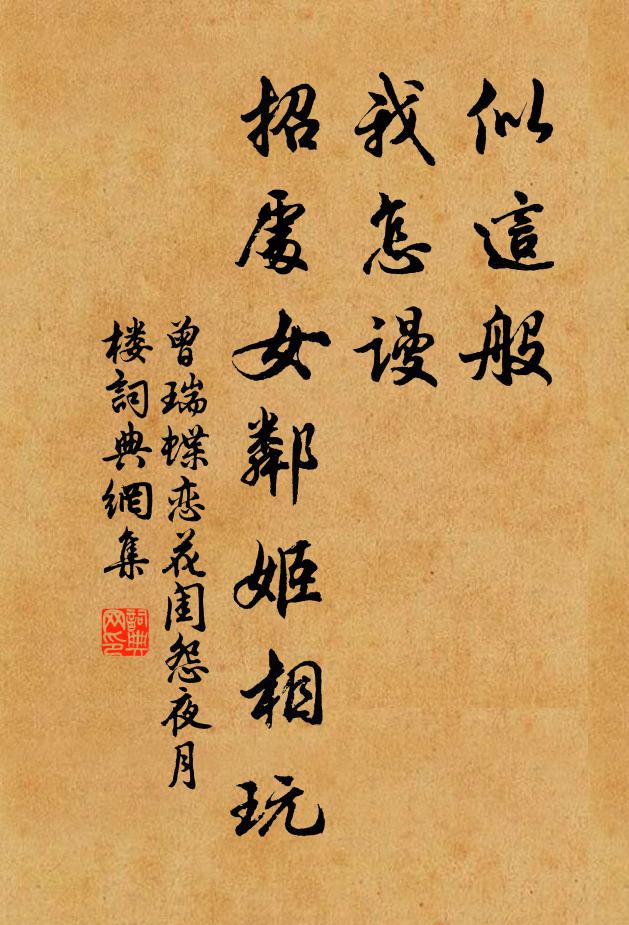 似這般
我怎謾
招處女鄰姬相玩
曾瑞蝶恋花闺怨夜月
楼詞典網集
詞典
网印